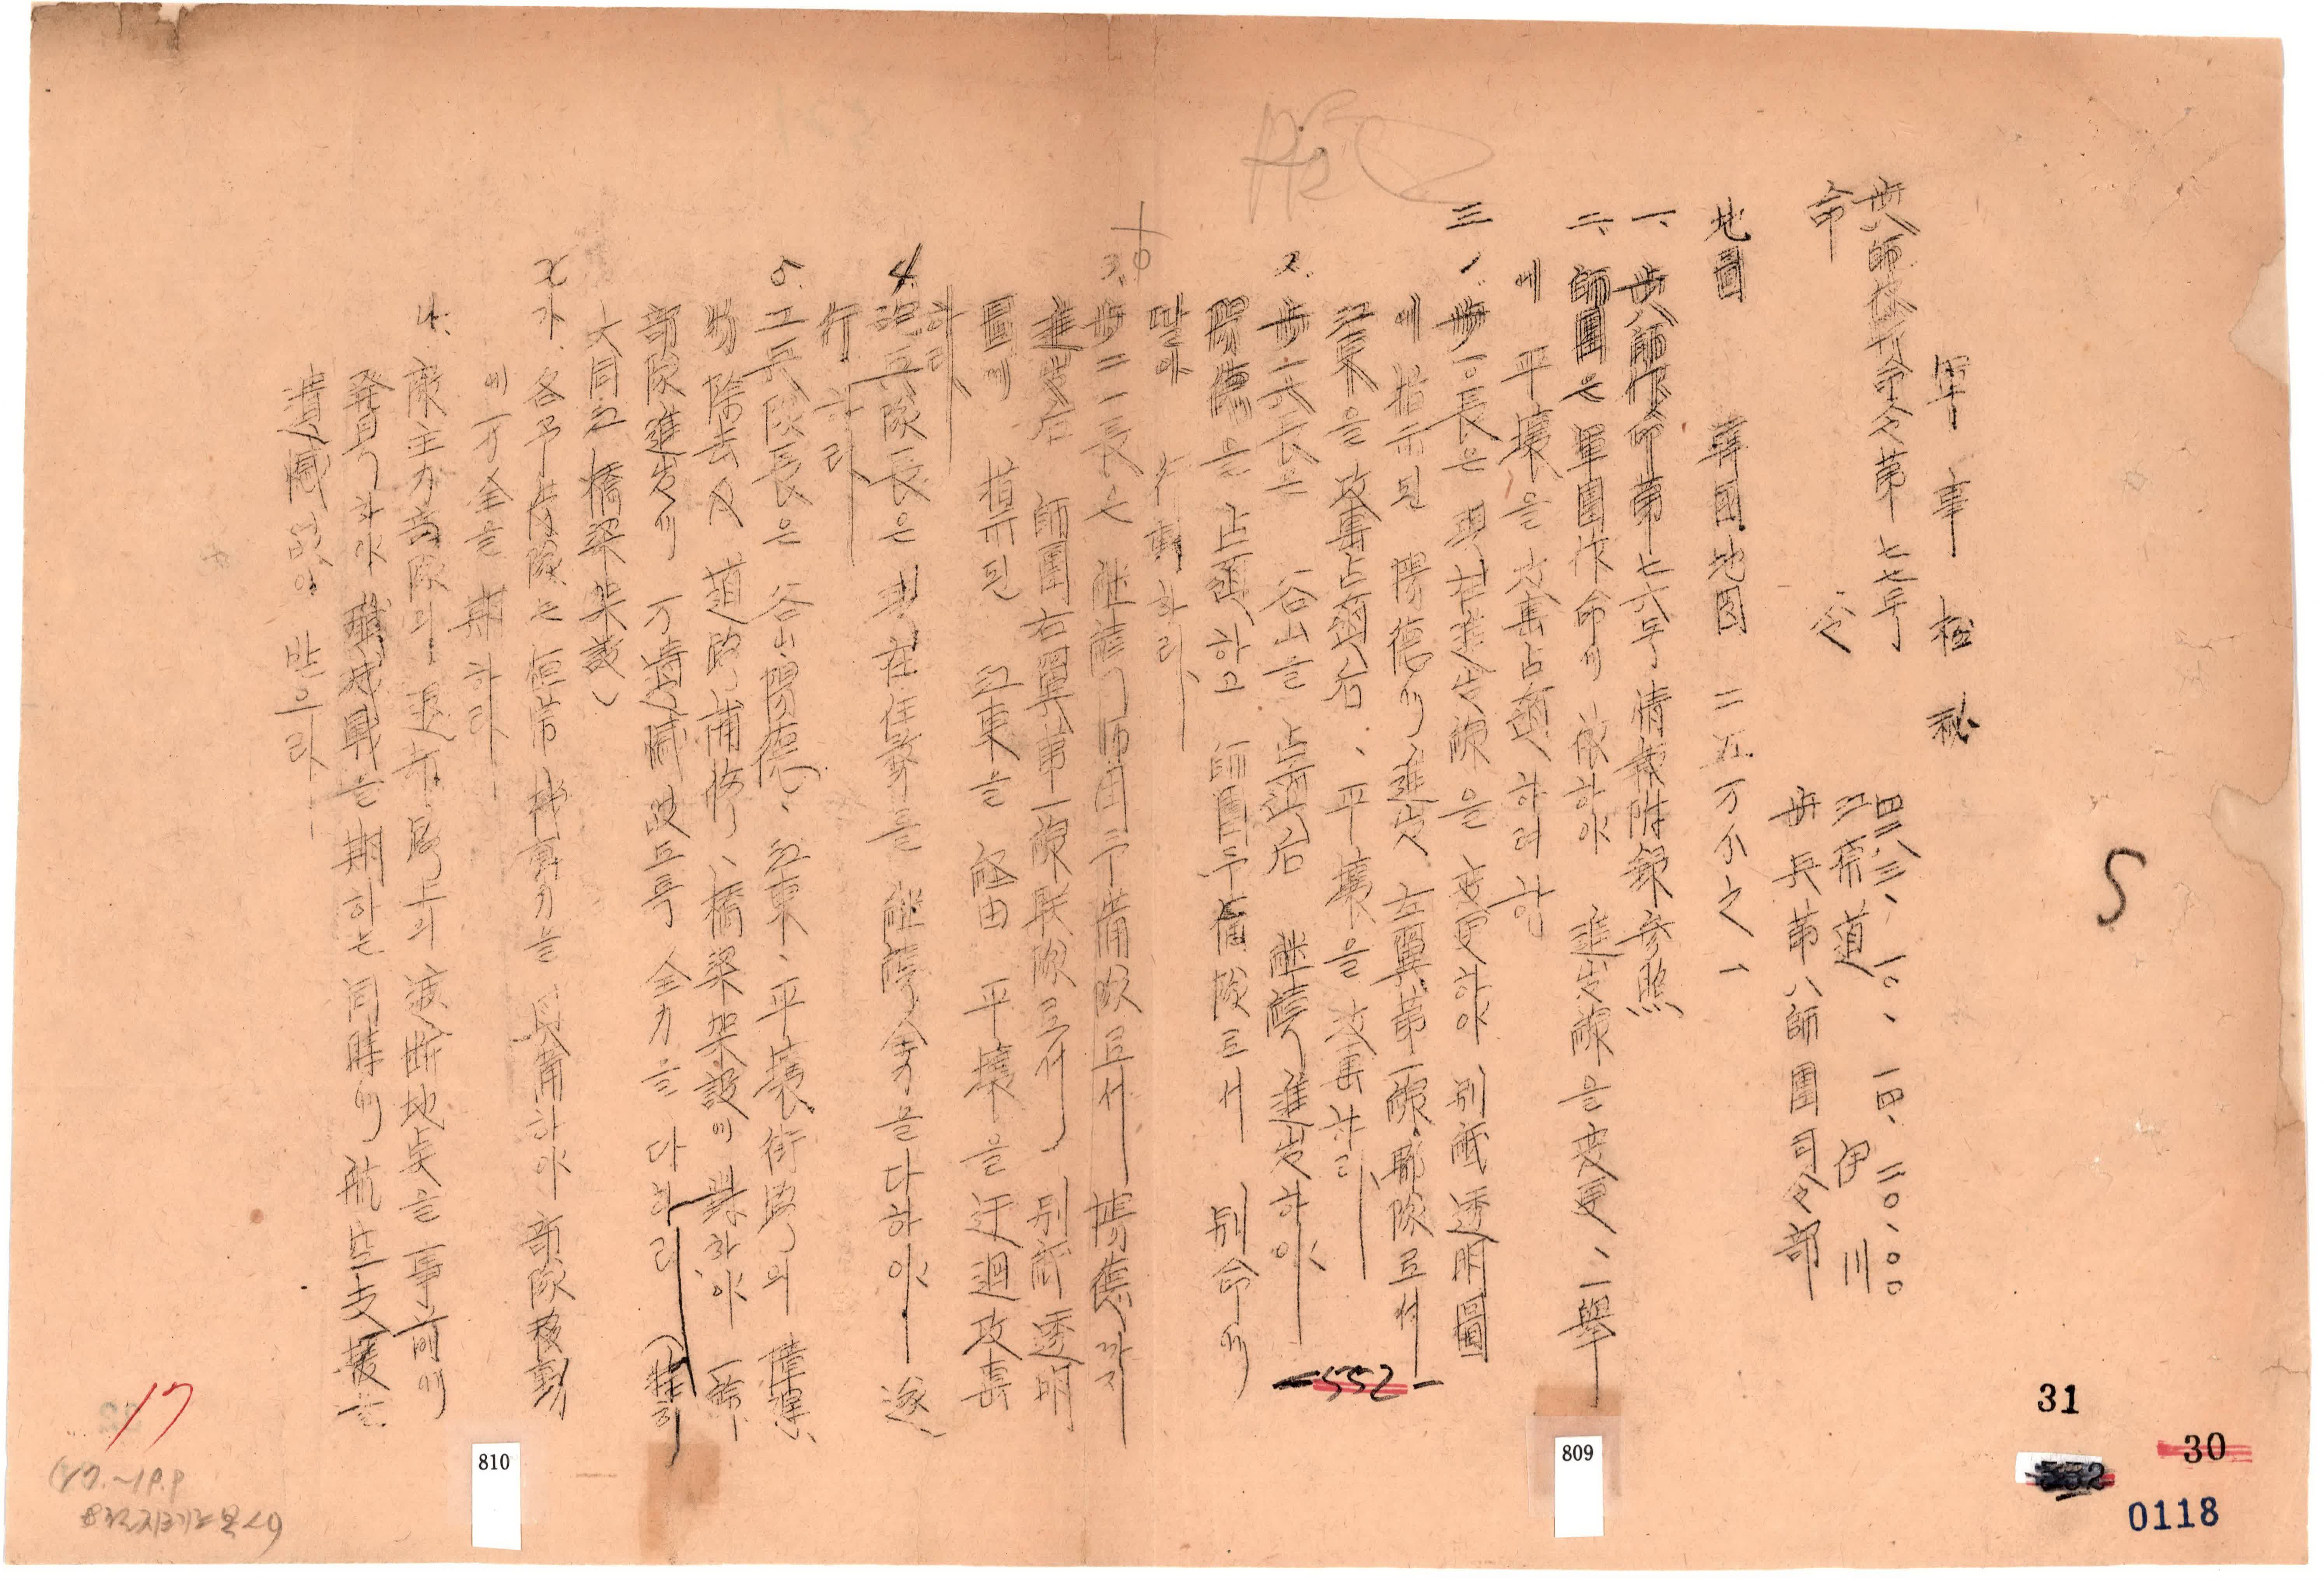 軍事極秘
步八師作命令第七七号
命令
四二八三、一〇、一四、二〇、〇〇
江原道 伊川
步兵第八師團司令部
地圖 韓國地図 二五万分之一
一、步八師作命第七六号情報附錄参照
二、師團은 軍團作命에 依하야 進出線을 変更、一擧
에 平壤을 攻擊占領하려 함
三 1. 步一〇長은 現在進出線을 変更하야 別紙透明圖
에 指示된 陽德에 進出 左翼第一線聯隊로서
江東을 攻擊占領后、平壤을 攻擊하라
2. 步一六長은 谷山을 占領后 継續進出하야
陽德을 占領하고 師團予備隊로서 別命에
딸아 行動하라
3. 步二一長은 継續師団予備隊로서 陽德까지
進出后 師團右翼第一線联隊로서 別紙透明
圖에 指示된 江東을 経由 平壤을 迂迴攻擊
하라
4. 砲兵隊長은 現在任務를 継續 全力을다하야 遂
行하라
5. 工兵隊長은 谷山、陽德、江東、平壤街路의 障碍
物 除去及 道路補修、橋梁架設에 ⁠하야 一線
部隊進出에 万遺憾 없도록 全力을 다하라 (特히
大同江 橋梁架設)
各予 部隊는 恒常 機動力을 具備하야 部隊移動
에 万全을 期하라
敵主力部隊의 退却路上의 遮断地点을 事前에
発見하야 殲滅戰을 期하는 同時에 航空支援을
遺憾없이 받으라
S
17
-552-
809
810
31
30
0118